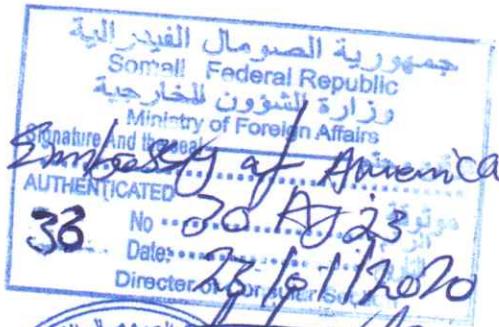 جمهورية الصومال الفيدرالية
Somali Federal Republic
وزارة الشؤون للخارجية
Ministry of Foreign Affairs
Signature And the seal
Embassy of America
AUTHENTICATED
36 No 30 AJ 23
Date: 23/01/2020
Director